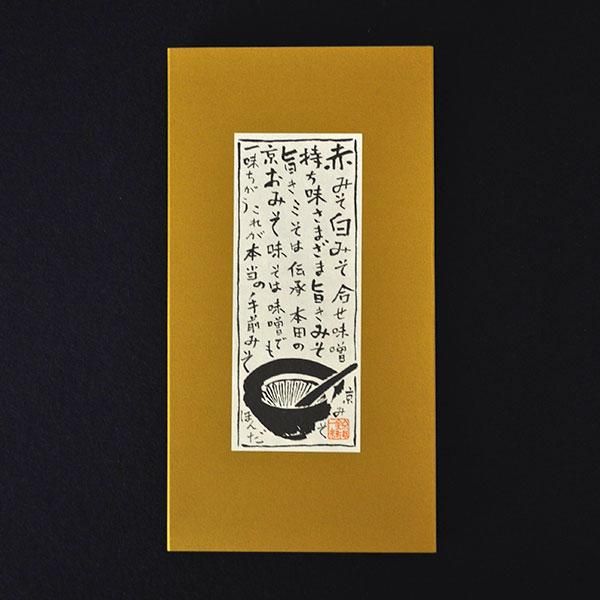 赤みそ白みそ合せ味噌
持ち味さまざま旨きみそ
旨きミそは伝承本田の
京おみそ味そは味噌でも
一味ちがうこれが本当の手前みそ
京み
そ
ほんだ